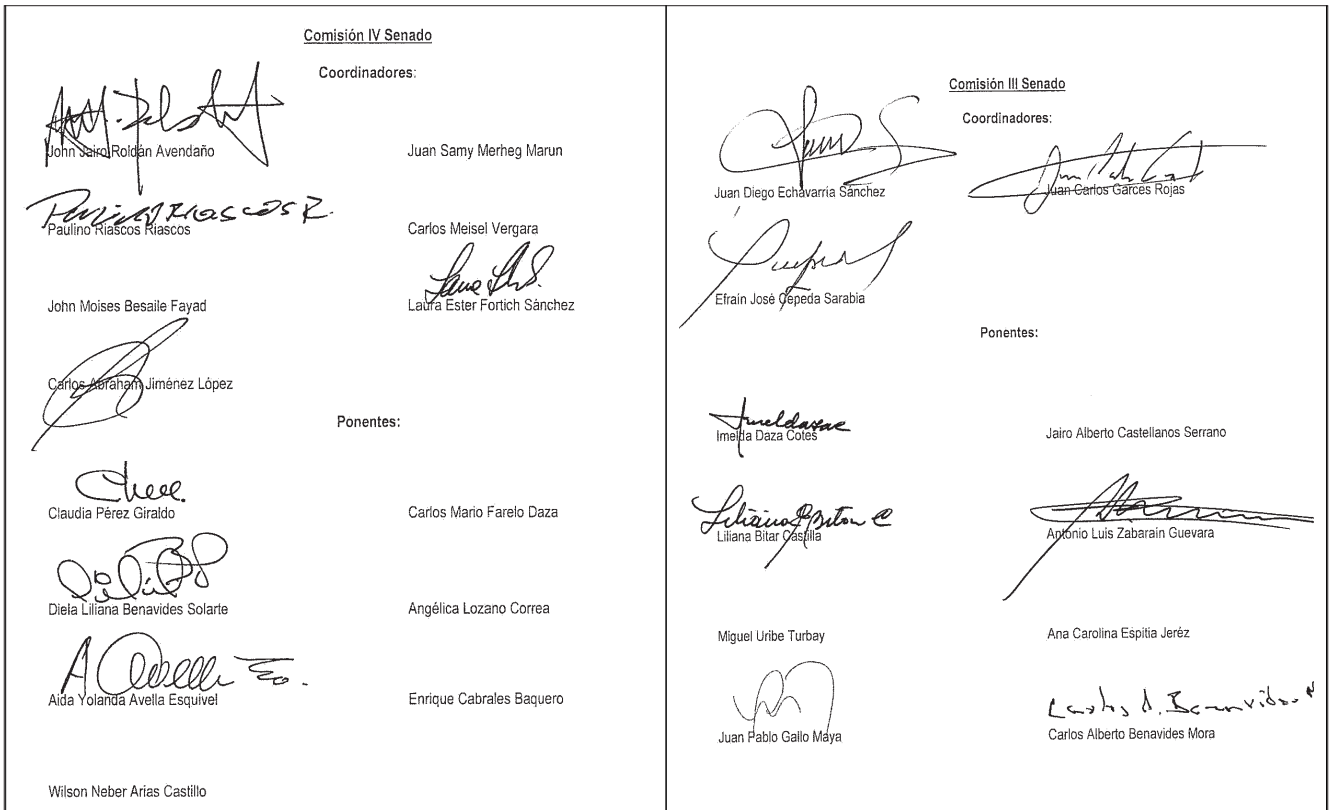 Comisión IV Senado
Coordinadores:
John Jairo Roldán Avendaño
Juan Samy Merheg Marun
Paulino Riascos R.
Paulino Riascos Riascos
Carlos Meisel Vergara
John Moises Besaile Fayad
Laura Ester Fortich Sánchez
Carlos Abraham Jiménez López
Ponentes:
Claudia Pérez Giraldo
Carlos Mario Farelo Daza
Diela Liliana Benavides Solarte
Angélica Lozano Correa
Aida Yolanda Avella Esquivel
Enrique Cabrales Baquero
Wilson Neber Arias Castillo
Comisión III Senado
Coordinadores:
Juan Diego Echavarría Sánchez
Juan Carlos Garces Rojas
Efraín José Cepeda Sarabia
Ponentes:
Imelda Daza Cotes
Jairo Alberto Castellanos Serrano
Liliana Bitar C
Liliana Bitar Castilla
Antonio Luis Zabarain Guevara
Miguel Uribe Turbay
Ana Carolina Espitia Jeréz
Juan Pablo Gallo Maya
Carlos A. Benavides M
Carlos Alberto Benavides Mora